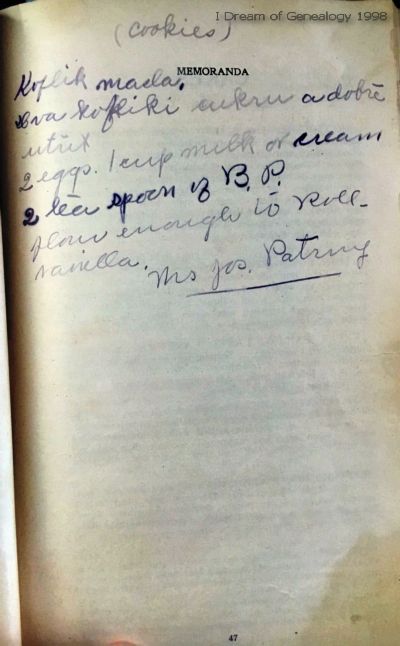 I Dream of Genealogy 1998
(cookies)
MEMORANDA
Koflik masla.
Dva kofliki cukru a dobře
utřít
2 eggs. 1 cup milk or cream
2 tea spoon of B. P.
flour enough to Roll-
vanilla.
Mrs Jos. Patrny
47